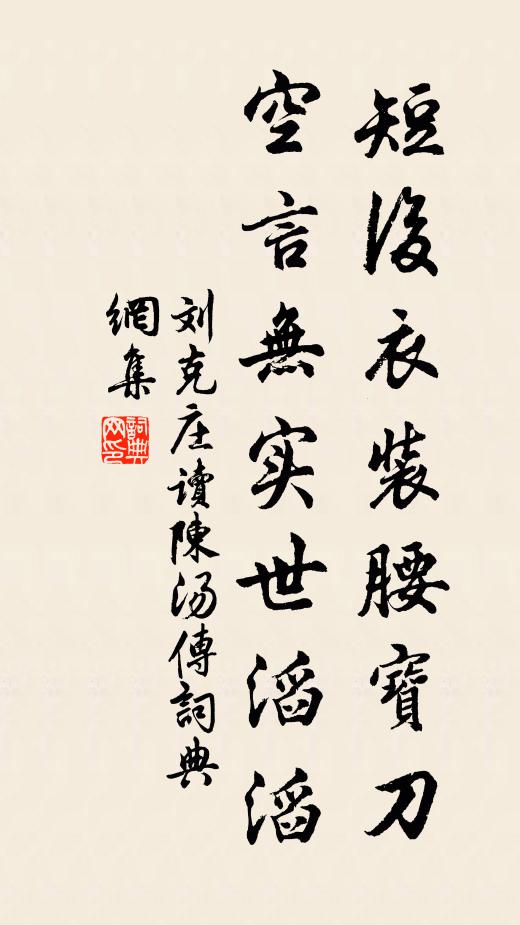 短後衣裝腰寶刀
空言無实世滔滔
刘克庄讀陳汤傳詞典
網集
詞典网印